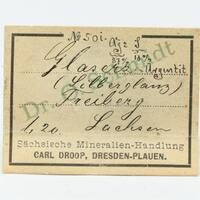 No 501.
Ag2 S
87% 13%
Glaserz Argentit
(Silberglanz)
Freiberg
1,20. Sachsen
Dr. G. Schmidt
Sächsische Mineralien-Handlung
CARL DROOP, DRESDEN-PLAUEN.